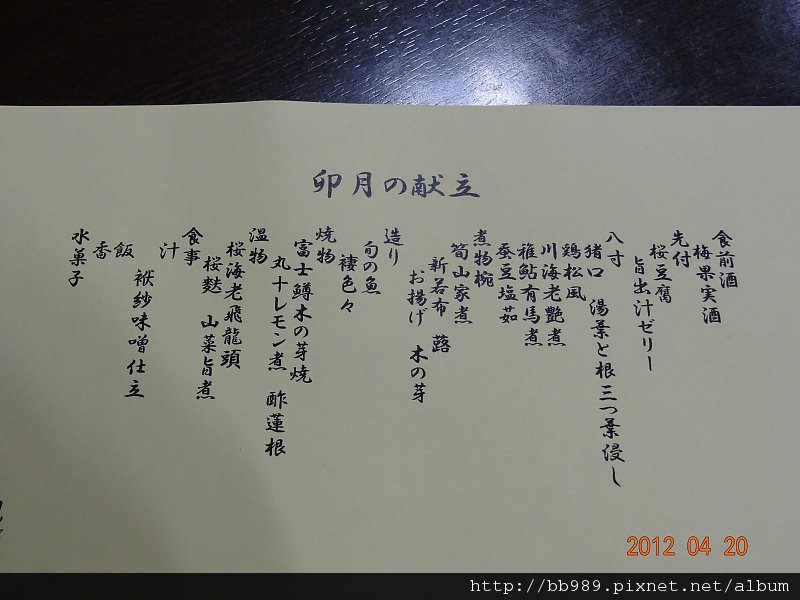 卯月の献立
食前酒
梅果実酒
先付
桜豆腐
旨出汁ゼリー
八寸
猪口 湯葉と根三つ葉浸し
鶏松風
川海老艶煮
稚鮎有馬煮
蚕豆塩茹
煮物椀
筍山家煮
新若布 蕗
お揚げ 木の芽
造り
旬の魚
褄色々
焼物
富士鱒木の芽焼
丸十レモン煮 酢蓮根
温物
桜海老飛龍頭
桜麩 山菜旨煮
食事
汁
袱紗味噌仕立
飯
香
水菓子
2012 04 20
http://bb989.pixnet.net/album